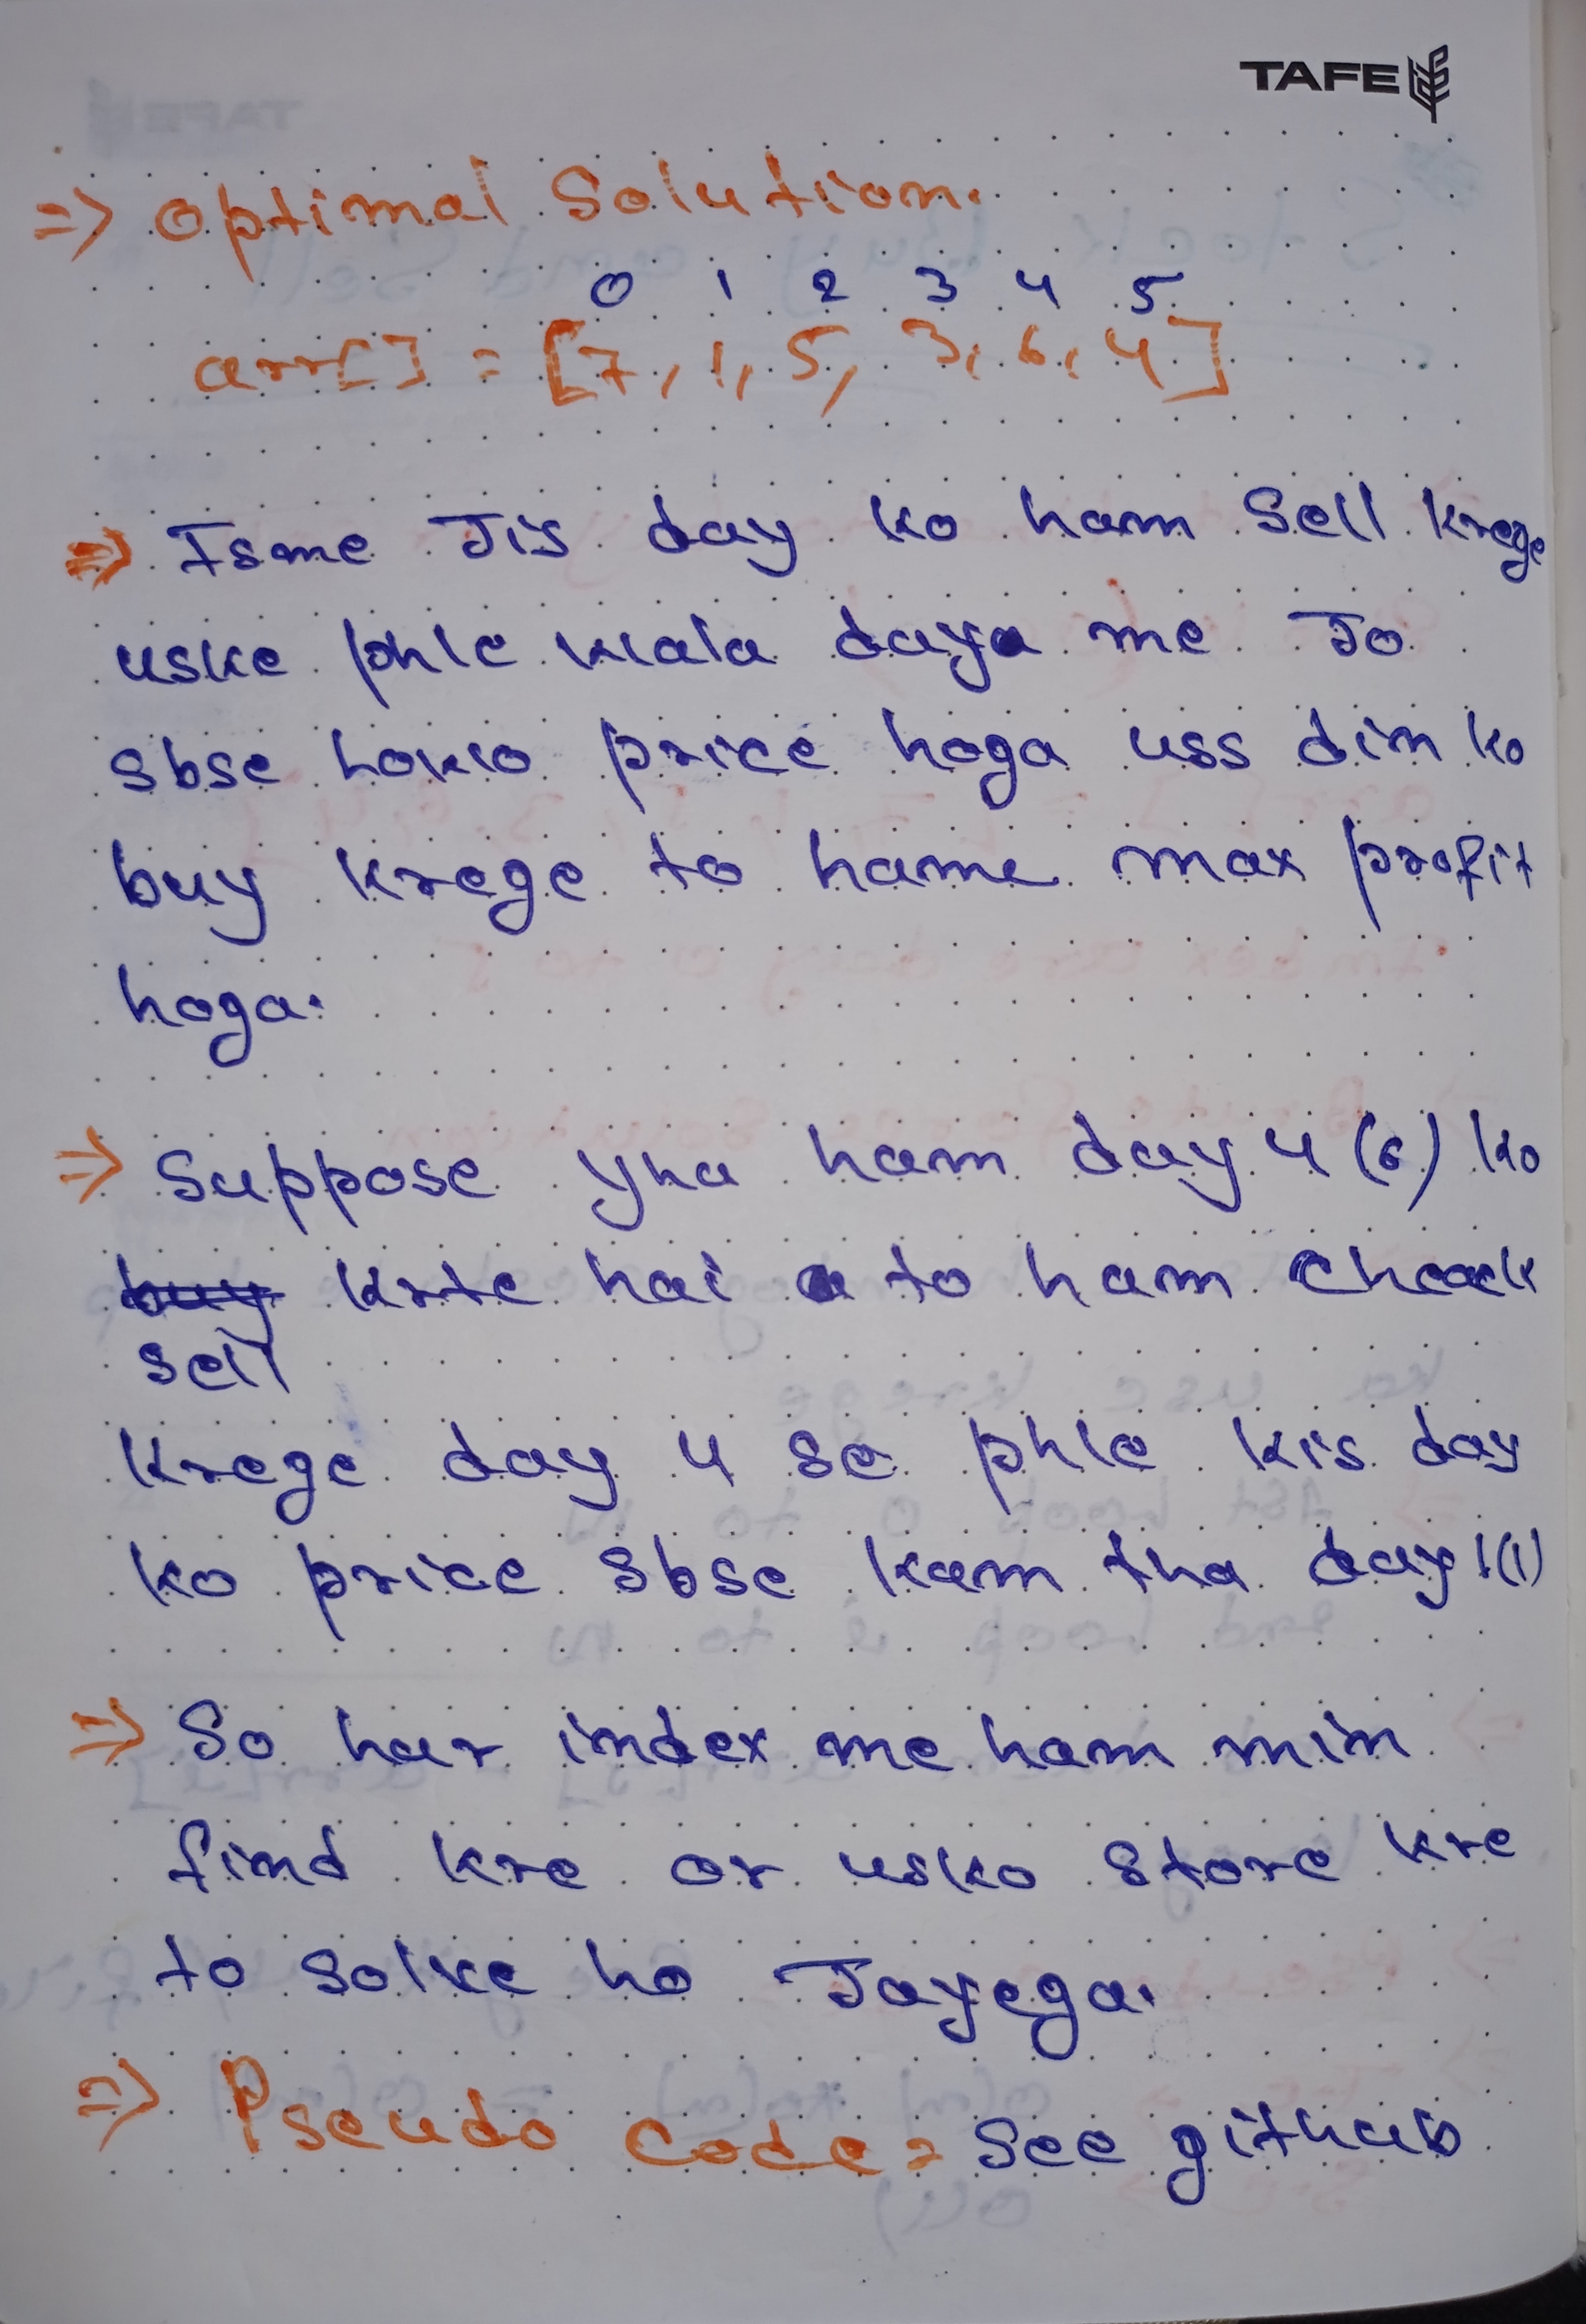 TAFE
=> Optimal Solution.
0 1 2 3 4 5
arr[] = [7, 1, 5, 3, 6, 4]
=> Isme Jis day ko ham Sell krege
uske phle wala daya me Jo
sbse Lowo price hoga uss din ko
buy krege to hame max profit
hoga.
=> Suppose yha ham day 4 (6) ko
buy krte hai to ham cheack
sell
krege day 4 se phle kis day
ko price sbse kam tha day 1(1)
=> So har index me ham min
find kre or usko store kre
to solve ho Jayega.
=> Pseudo code = See github